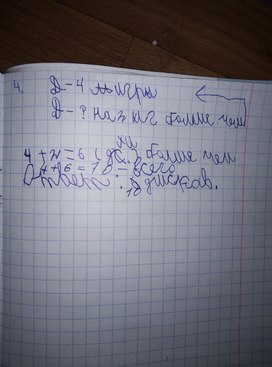 4. Д - 4 м игры
Д - ? на 2 м г больше чем
4 + 2 = 6 (д.) больше чем
4 + 6 = 10 - всего
Ответ: 10 дисков.